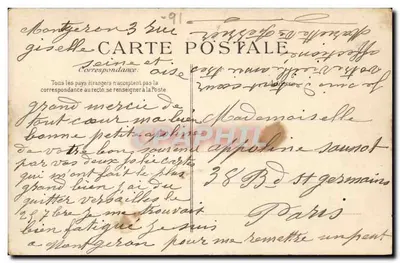 -91
Montgeron 3 rue
giselle
seine et
oise
CARTE POSTALE
Correspondance
Tous les pays étrangers n'acceptent pas la
correspondance au recto, se renseigner à la Poste
grand mercie de
tout cœur ma bien
bonne petite
de votre bon souvenir
par vos deux jolie cartes
qui m'ont fait le plus
grand bien j'ai du
quitter versailles le
25 7bre je me trouvait
bien fatigué je suis
a Montgeron pour me remettre un peu
Mademoiselle
appoline saunot
38 Bd st germains
Paris
votre vieille amie
affection